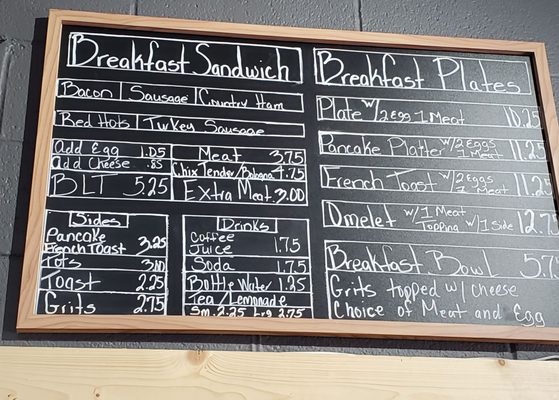 Breakfast Sandwich
Bacon | Sausage | Country Ham
Red Hots | Turkey Sausage
Add Egg 1.05
Add Cheese .85
BLT 5.25
Meat 3.75
Chix Tender/Bologna 4.75
Extra Meat 3.00
Sides
Pancake
French Toast 3.25
Tots
Toast 2.25
Grits 2.75
Drinks
Coffee
Juice 1.75
Soda 1.75
Bottle Water 1.25
Tea/Lemonade
Sm. 2.25 Lrg 2.75
Breakfast Plates
Plate w/ 2 Egg 1 Meat 10.25
Pancake Platter w/ 2 Eggs 1 Meat 11.25
French Toast w/ 2 Eggs 1 Meat 11.25
Omelet w/ 1 Meat Topping w/ 1 Side 12.75
Breakfast Bowl 5.75
Grits topped w/ cheese
Choice of Meat and Egg